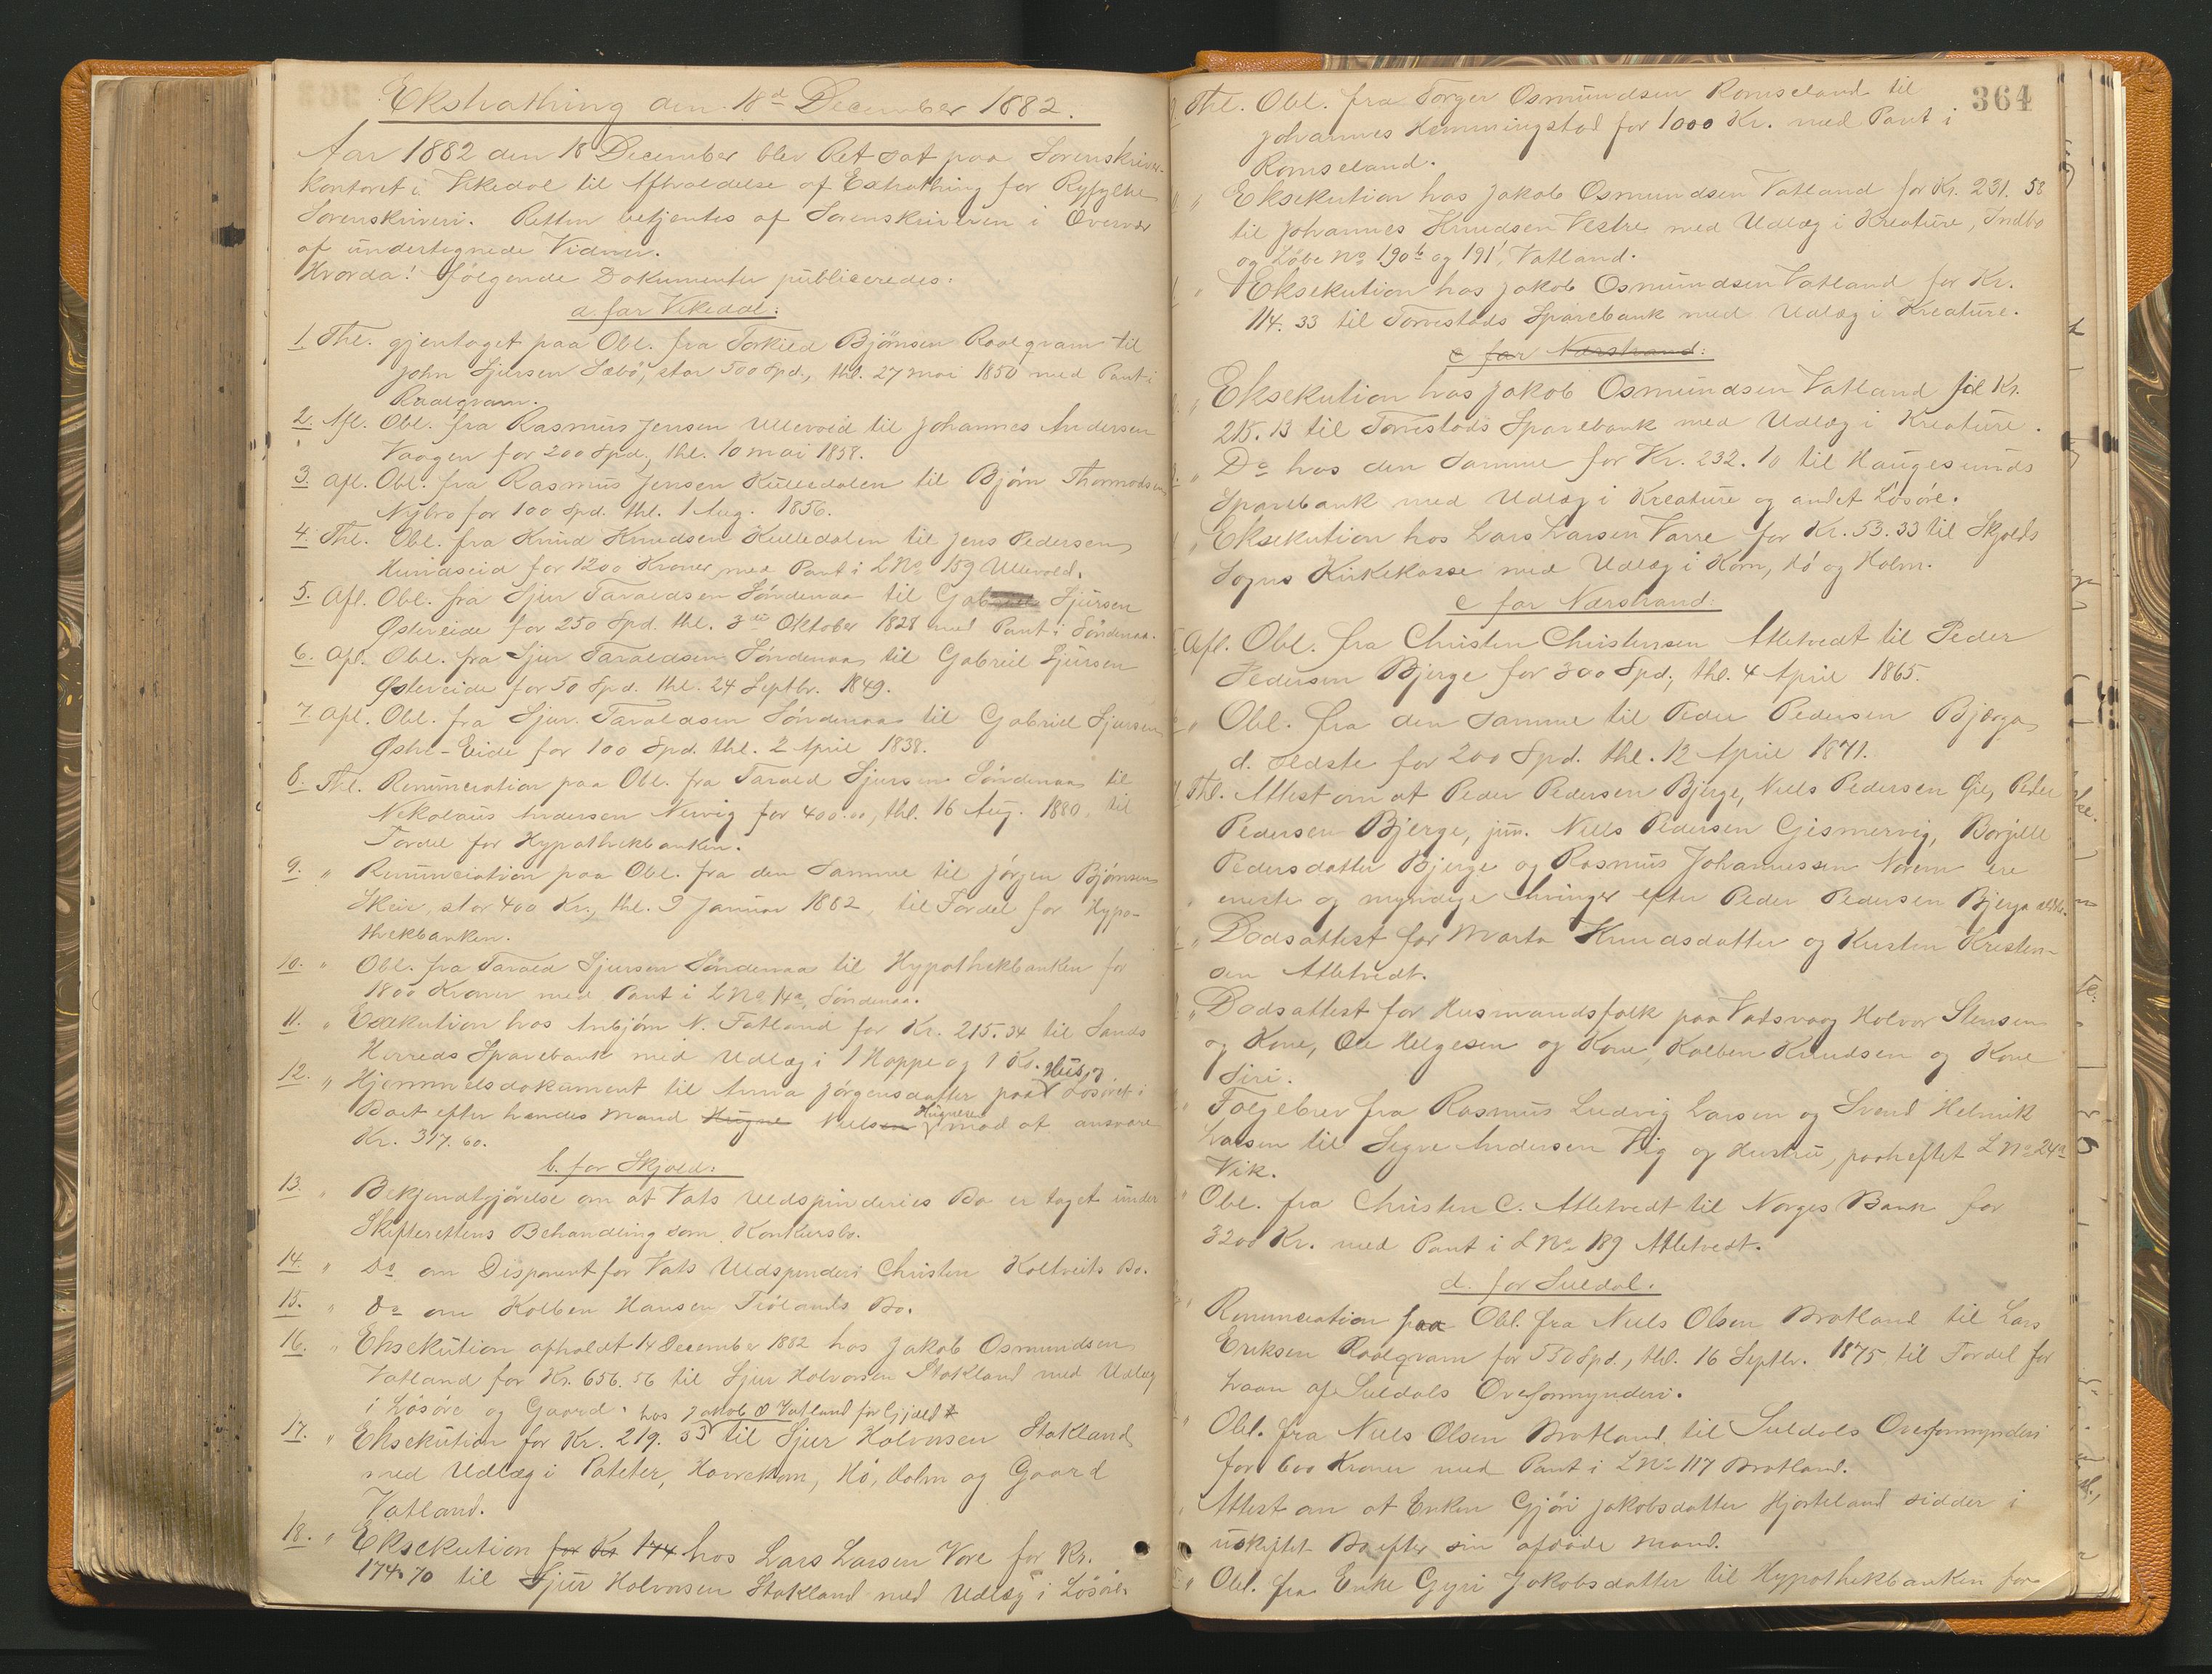 Ekstrathing den 18d December 1882.
Aar 1882 den 18 December blev Ret sat paa Sorenskriver-
kontoret i Vikedal til Afholdelse af Extrathing for Ryfylke
Sorenskriveri. Retten betjentes af Sorenskriveren i Overvær
af undertegnede Vidner.
Hvorda! følgende Dokumenter publiceredes:
a. for Vikedal:
1. Thl. gjentaget paa Obl. fra Torkild Bjönsen Raalqvam til
John Sjursen Sæbö, stor 500 Spd., thl. 27 mai 1850 med Pant i
Raalqvam.
2. Afl. Obl. fra Rasmus Jensen Ullevold til Johannes Andersen
Vaagen for 200 Spd., thl. 10 mai 1858.
3. Afl. Obl. fra Rasmus Jensen Kulledalen til Bjørn Thormodsen
Nybro for 100 Spd. thl. 1 Aug. 1856.
4. Thl. Obl. fra Knud Knudsen Kulledalen til Jens Pedersen
Hundseid for 1200 Kroner med Pant i L No 159 Ullevold.
5. Afl. Obl. fra Sjur Taraldsen Söndenaa til Gab Sjursen
Østereide for 250 Spd. thl. 3die Oktober 1828 med Pant i Söndenaa.
6. Afl. Obl. fra Sjur Taraldsen Söndenaa til Gabriel Sjursen
Østereide for 50 Spd. thl. 24 Septbr. 1849.
7. Afl. Obl. fra Sjur Taraldsen Söndenaa til Gabriel Sjursen
Østre-Eide for 100 Spd. thl. 2 April 1838.
8. Thl. Renunciation paa Obl. fra Tarald Sjursen Söndenaa til
Nikolaus Andersen Nervig for 400.00, thl. 16 Aug. 1880, til
Fordel for Hypothekbanken.
9. " Renunciation paa Obl. fra den Samme til Jörgen Bjørnsen
Skeie, stor 400 Kr., thl. 9 Januar 1882, til Fordel for Hypo-
thekbanken.
10. " Obl. fra Tarald Sjursen Söndenaa til Hypothekbanken for
1800 Kroner med Pant i L No 14a, Söndenaa.
11. " Exekution hos Anbjörn N. Fatland for Kr. 215.34 til Sands
Herreds Sparebank med Udlæg i 1 Hoppe og 1 Ko.
12. " Hjemmelsdokument til Anna Jörgensdatter paa Hus og Lösöret i
Boet efter hendes Mand Hugne Nielsen Hugnesen mod at ansvare
Kr. 317.60.
b. for Skjold:
13. " Bekjendtgjörelse om at Vats Uldspinderies Bo er taget under
Skifterettens Behandling som Konkursbo.
14. " Do om Disponent for Vats Uldspinderi Christen Koltveits Bo.
15. " Do om Kolben Hansen Trölands Bo.
16. " Eksekution afholdt 14 December 1882 hos Jakob Osmundsen
Vatland for Kr. 656.56 til Sjur Halvorsen Stakland med Udlæg
i Lösöre og Gaard.
hos Jakob O Vatland for Gjæld
17. " Eksekution for Kr. 219.53 til Sjur Halvorsen Stakland
med Udlæg i Poteter, Havrekorn, Hö, Halm og Gaard
Vatland.
18. " Eksekution for Kr 174 hos Lars Larsen Vore for Kr.
174.70 til Sjur Halvorsen Stakland med Udlæg i Lösöre.
364
Thl. Obl. fra Torger Osmundsen Romseland til
Johannes Hemmingstad for 1000 Kr. med Pant i
Romseland.
" Eksekution hos Jakob Osmundsen Vatland for Kr. 231.58
til Johannes Knudsen Vestre med Udlæg i Kreature, Indbo
og Löbe No 190b og 191, Vatland.
" Eksekution hos Jakob Osmundsen Vatland for Kr.
114.33 til Torvestads Sparebank med Udlæg i Kreature.
c for Nærstrand:
" Eksekution hos Jakob Osmundsen Vatland for Kr.
215.13 til Torvestads Sparebank med Udlæg i Kreature.
" Do hos den Samme for Kr. 232.10 til Haugesunds
Sparebank med Udlæg i Kreature og andet Lösöre.
" Eksekution hos Lars Larsen Varre for Kr. 53.33 til Skjolds
Sogns Kirkekasse med Udlæg i Korn, Hö og Halm.
c for Nærstrand:
Afl. Obl. fra Christen Christensen Atletvedt til Peder
Pedersen Bjerge for 300 Spd., thl. 4 April 1865.
" Obl. fra den Samme til Peder Pedersen Bjerga
d. ældste for 200 Spd. thl. 12 April 1871.
Thl. Attest om at Peder Pedersen Bjerge, Niels Pedersen Øie, Peder
Pedersen Bjerge, jun. Niels Pedersen Gismervig, Borgille
Pedersdatter Bjerge og Rasmus Johannessen Norem ere
eneste og myndige Arvinger efter Peder Pedersen Bjerga ældste.
" Dødsattest for Marta Knudsdatter og Kristen Kristen-
sen Atletvedt.
" Dødsattest for Husmandsfolk paa Vatsvaag Holvor Stensen
og Kone, Ole Helgesen og Kone, Kolben Knudsen og Kone
Siri.
" Følgebrev fra Rasmus Ludvig Larsen og Svend Helmik
Larsen til Segve Andersen Vig og Hustru, paaheftet L No 24a
Vik.
" Obl. fra Christen C. Atletvedt til Norges Bank for
3200 Kr. med Pant i L No 189 Atletvedt.
d. for Suldal.
Renunciation paa Obl. fra Niels Olsen Bratland til Lars
Eriksen Raalqvam for 550 Spd., thl. 16 Septbr. 1875 til Fordel for
Laan af Suldals Overformynderi.
" Obl. fra Niels Olsen Bratland til Suldals Overformynderi
for 600 Kroner med Pant i L No 117 Bratland.
Attest om at Enken Gjöri Jakobsdatter Hjorteland sidder i
uskiftet Bo efter sin afdøde Mand.
" Obl. fra Enke Gyri Jakobsdatter til Hypothekbanken for